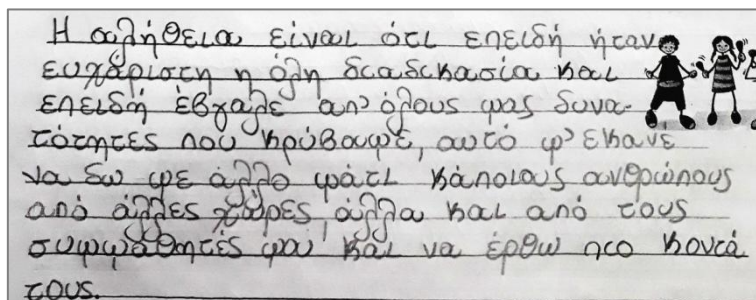 Η αλήθεια είναι ότι επειδή ήταν
ευχάριστη η όλη διαδικασία και
επειδή έβγαλε απ' όλους μας δυνα-
τότητες που κρύβουμε, αυτό μ' έκανε
να δω με άλλο μάτι κάποιους ανθρώπους
από άλλες χώρες, άλλα και από τους
συμμαθητές μου και να έρθω πιο κοντά
τους.